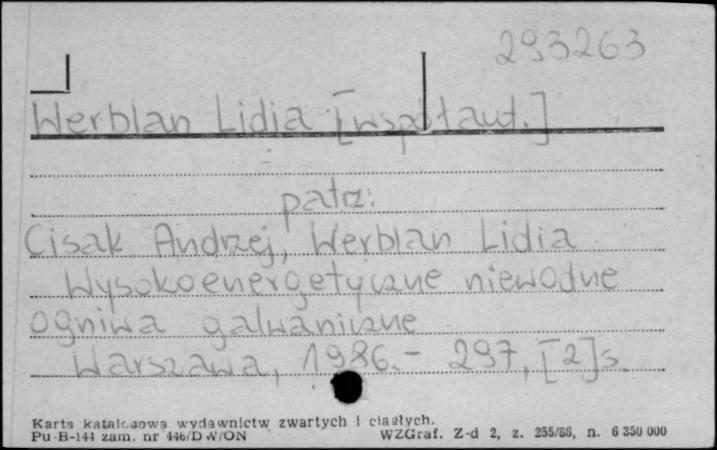 293263
Werblan Lidia [współaut.]
patrz:
Cisak Andrzej, Werblan Lidia
Wysokoenergetyczne niewodne
ogniwa galwaniczne
Warszawa, 1986.- 297, [2]s.
Karta katalogowa wydawnictw zwartych i ciągłych.
Pu-B-144 zam. nr 446/DW/ON WZGraf. Z-d 2, z. 255/86, n. 6 350 000